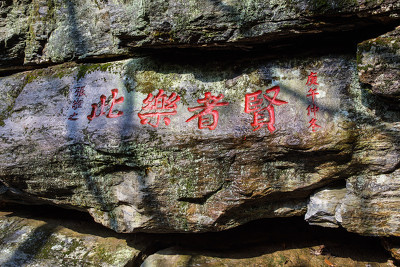 庚午仲冬
賢者樂此